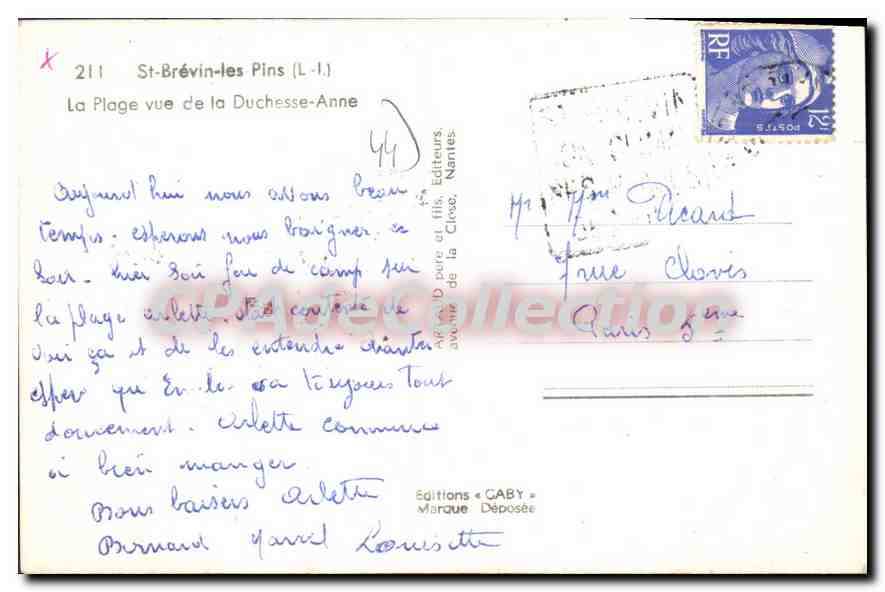 211 St-Brévin-les Pins (L.-I.)
La Plage vue de la Duchesse-Anne
44
Aujourd hui nous avons beau
temps. esperons nous baigner ce
Soir. hier Soir feu de camp sur
la plage arlette contente de
voir ça et de les entendre chanter
espere que tout
doucement. Arlette commence
a bien manger.
Bons baisers Arlette
Bernard Marcel Louisette
ARTAUD père et fils, Editeurs,
avenue de la Close, Nantes.
Editions « GABY »
Marque Déposée
RF
POSTES
12F
Mr Mme Picard
7 rue Clovis
Paris 5 eme
CPAdeCollection.com